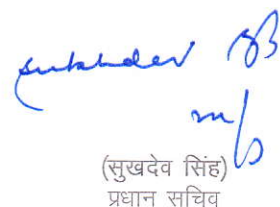 sukhdev
(सुखदेव सिंह)
प्रधान सचिव